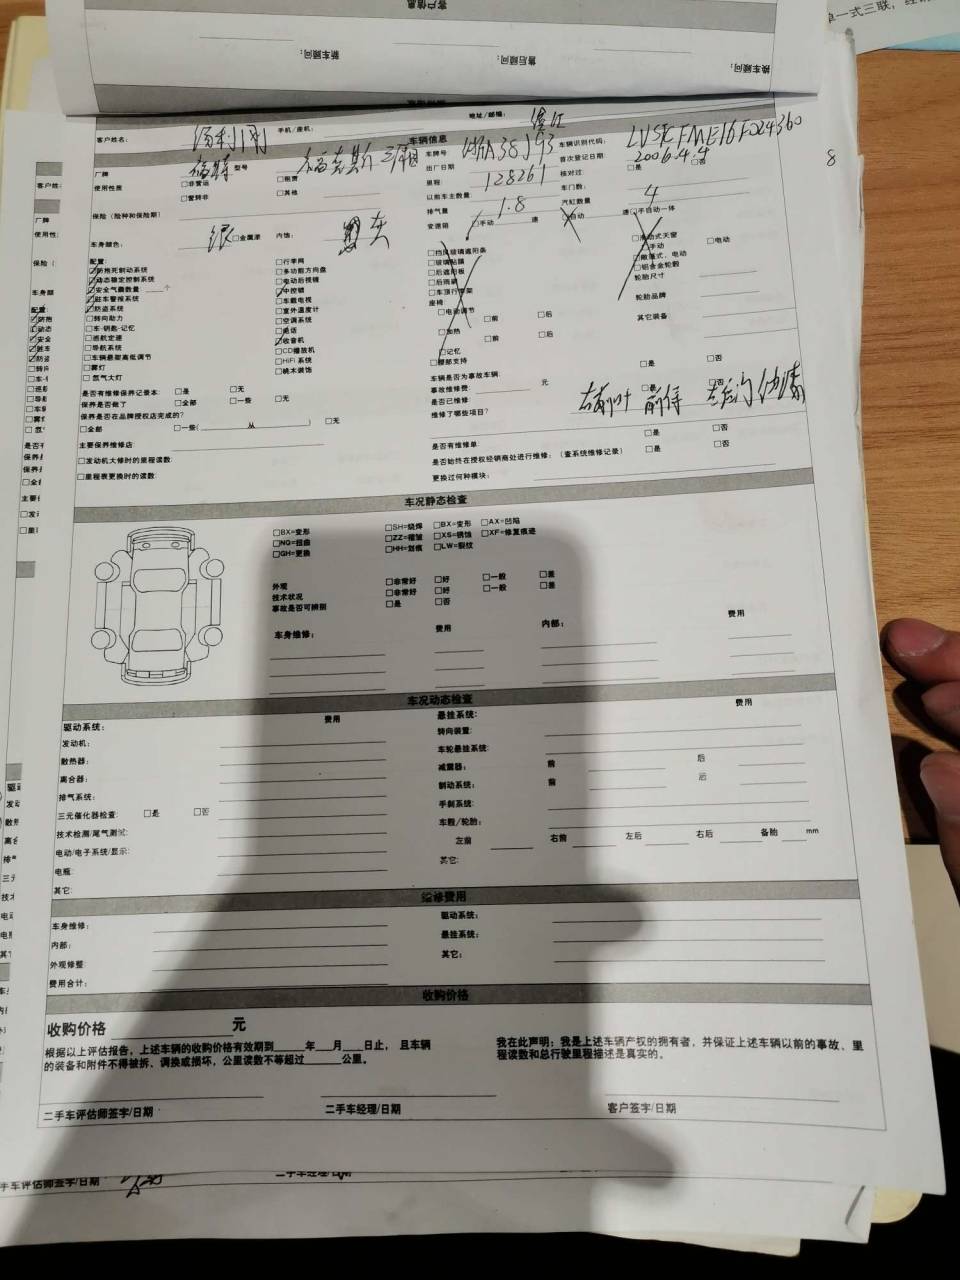 客户信息
新车顾问：
售后顾问：
换车顾问：
单一式三联，
客户姓名：
手机/座机：
地址/邮编：
车辆信息
厂牌 福特 型号 福克斯 三厢
车牌号
车辆识别代码：
出厂日期
首次登记日期： 2006.4.4
使用性质 □非营运 □租赁
里程： 128261
核对过： □是 □否
□营转非 □其他
以前车主数量：
车门数： 4
保险（险种和保险期）
排气量 1.8
汽缸数量
变速箱 □手动 速 □自动 速 □手自动一体
车身颜色： 银 □金属漆 内饰：
8
配置：
防抱死制动系统
动态稳定控制系统
安全气囊数量 ____个
驻车警报系统
防盗系统
□转向助力
□车-钥匙-记忆
□巡航定速
□导航系统
□车辆悬架高低调节
□雾灯
□氙气大灯
□行李网
□多功能方向盘
□电动后视镜
中控锁
□车载电视
□室外温度计
□空调系统
□电话
收音机
□CD播放机
□HiFi 系统
□桃木装饰
□挡风玻璃遮阳条
□玻璃贴膜
□后遮阳板
□后雨刷
□车顶行李架
座椅
□电动调节
□前 □后
□加热
□前 □后
□记忆
□腰部支持
□滑动式天窗
□手动 □电动
□敞篷式，电动
□铝合金轮毂
轮胎尺寸
轮胎品牌
其它装备
车辆是否为事故车辆： □是 □否
事故维修费： 元
是否已维修： □是 □否
维修了哪些项目？
是否有维修保养记录本： □是 □无
保养是否做了 □全部 □一些 □无
保养是否在品牌授权店完成的？
□全部 □一些( 从 ) □无
主要保养维修店：
□发动机大修时的里程读数：
□里程表更换时的读数：
是否有维修单： □是 □否
是否始终在授权经销商处进行维修：（查系统维修记录） □是 □否
更换过何种模块：
车况静态检查
□BX=变形 □SH=烧焊 □BX=变形 □AX=凹陷
□NQ=扭曲 □ZZ=褶皱 □XS=锈蚀 □XF=修复痕迹
□GH=更换 □HH=划痕 □LW=裂纹
外观 □非常好 □好 □一般 □差
技术状况 □非常好 □好 □一般 □差
事故是否可辨别 □是 □否
车身维修： 费用 内部： 费用
车况动态检查
驱动系统： 费用 悬挂系统： 费用
发动机： 转向装置：
散热器： 车轮悬挂系统：
离合器： 减震器： 前 后
排气系统： 制动系统： 前 后
三元催化器检查： □是 □否 手刹系统：
技术检测/尾气测试： 车毂/轮胎：
左前 右前 左后 右后 备胎 mm
电动/电子系统/显示：
电瓶： 其它：
其它：
维修费用
车身维修： 驱动系统：
内部： 悬挂系统：
外观修整： 其它：
费用合计：
收购价格
收购价格 元
根据以上评估报告，上述车辆的收购价格有效期到____年__月___日止， 且车辆
的装备和附件不得被拆、调换或损坏，公里读数不等超过_____公里。
我在此声明：我是上述车辆产权的拥有者，并保证上述车辆以前的事故、里
程读数和总行驶里程描述是真实的。
二手车评估师签字/日期
二手车经理/日期
客户签字/日期
手车评估师签字/日期
二手车经理/日期